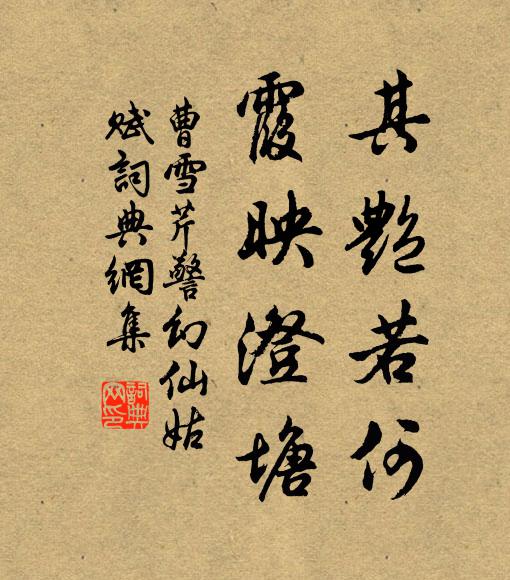 其艷若何
霞映澄塘
曹雪芹警幻仙姑
賦詞典網集
詞典
网印